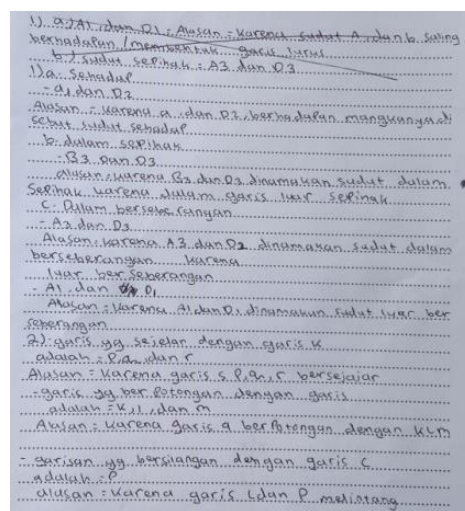 1) a) A1, dan D1 = Alasan = karena sudut A, dan b saling
berhadapan / membentuk garis lurus
b) sudut sepihak = A3 dan D3
1) a. Sehadap
- a1 dan D2
Alasan = karena a, dan D2, berhadapan mangkanya di
sebut sudut sehadap
b. dalam sepihak
- B3 Dan D3
alasan, karena B3 dan D3 dinamakan sudut dalam
Sepihak karena dalam garis luar sepihak
C. Dalam berseberangan
- A3 dan D3
Alasan, karena A3 dan D2 dinamakan sudut dalam
berseberangan karena
luar berseberangan
- A1, dan D1
Alasan = karena A1 dan D1 dinamakan sudut luar ber
seberangan
2). garis yg sejelar dengan garis K
adalah = P, a, dan r
Alasan = karena garis s P, q, r bersejajar
- garis yg berpotongan dengan garis
adalah = K, l, dan m
Alasan = karena garis q berpotongan dengan KLM
- garisan yg bersilangan dengan garis c
adalah = P
alasan = karena garis L dan P melintang